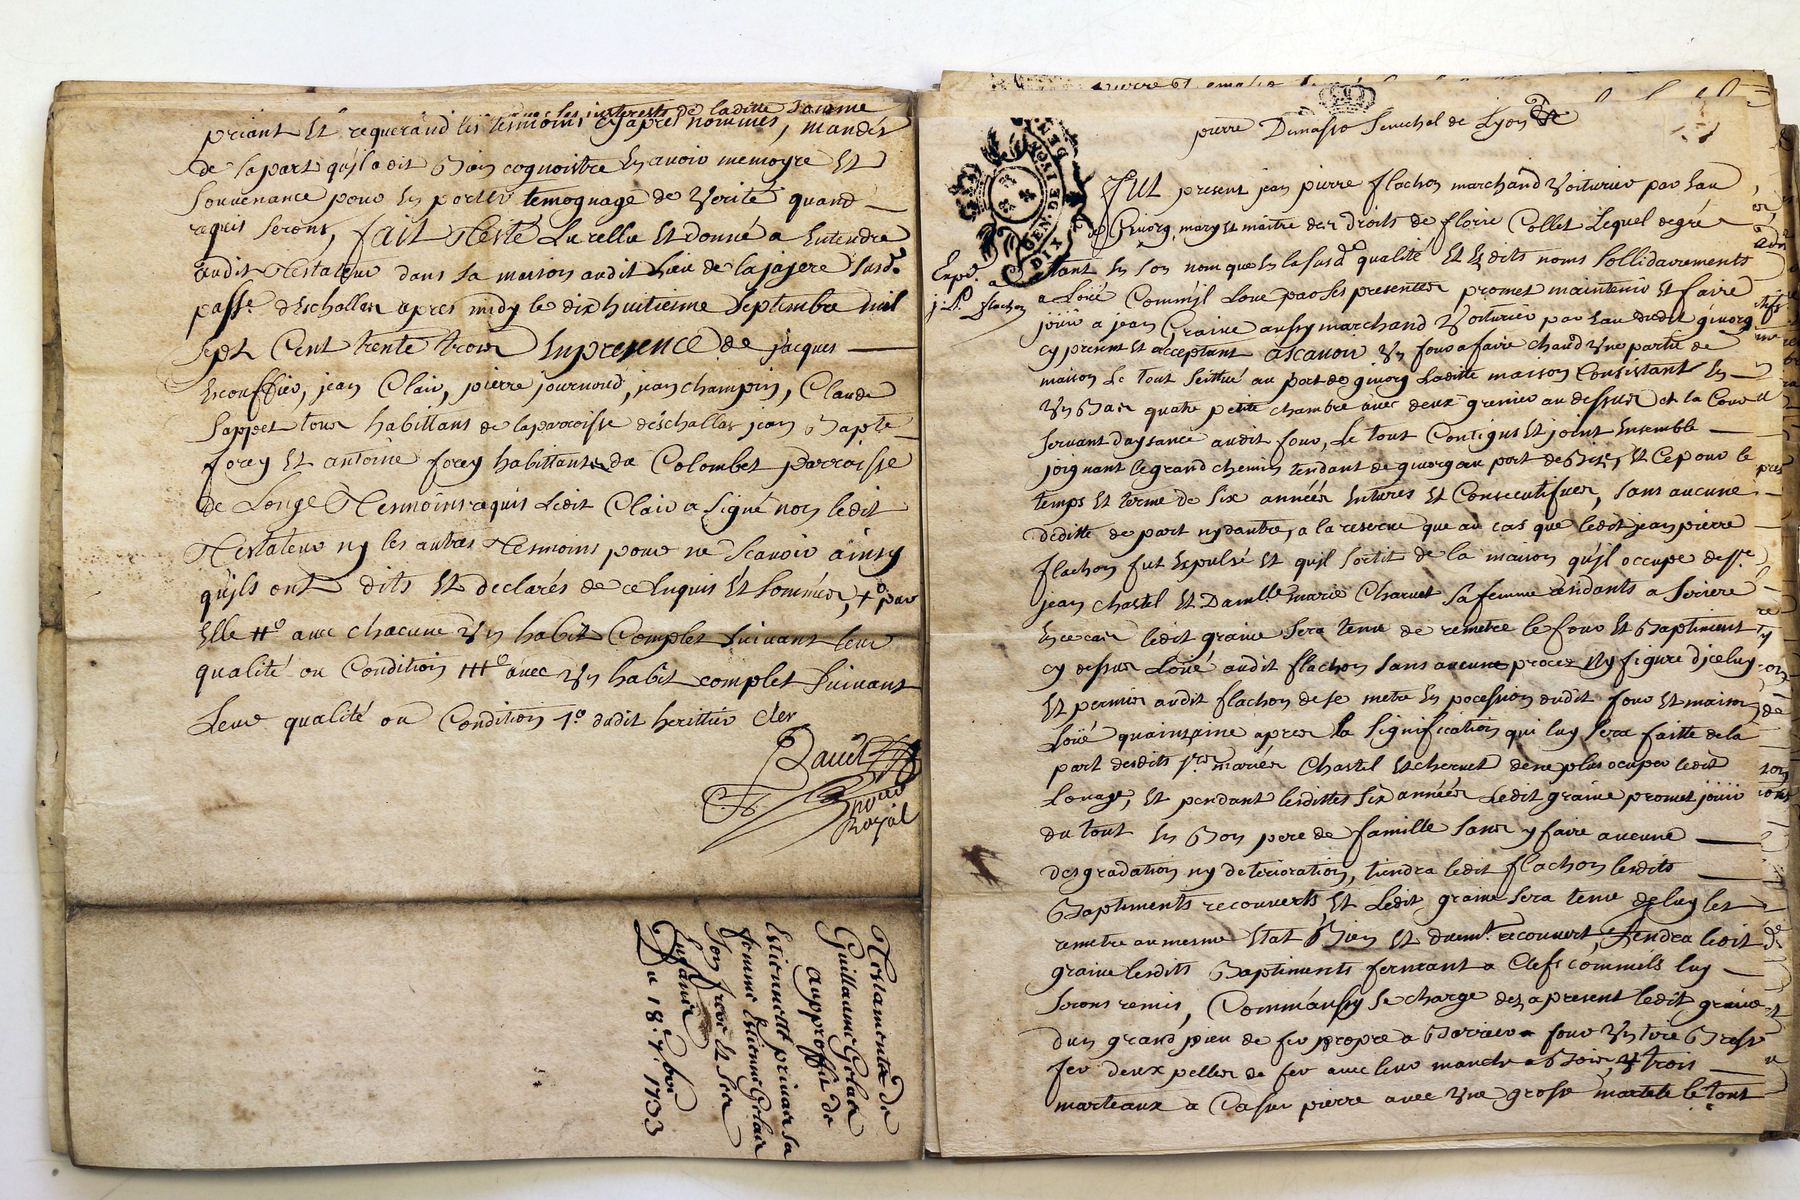 avec les interests de laditte somme
priant Et requerand les tesmoins cy apres nommés, mandés
de sa part qu'il a dit Bien cognoitre En avoir memoyre Et
souvenance pour En porter temognage de Verité quand
requis seront, fait Testé Lu relu Et donné a Entendre
audit Testateur dans sa maison audit Lieu de la jajere susd.
passé d'Eschallas apres midy le dix huitieme Septembre mil
sept Cent trente trois En presence de jacques
Escoffier, jean Clair, pierre journoud, jean champin, Claude
Sappet tous habittans de la parroisse d'Eschallas jean Bapte
forey Et antoine forey habittants de Colombet parroisse
de Longe Tesmoins requis Ledit Clair a signé non ledit
Testateur ny les autres Tesmoins pour ne scavoir ainsy
qu'ils ont dits Et declarés de ce Enquis Et sommés, + par
Elle ++ avec chacune Un habit Complet suivant leur
qualité ou Condition +++ avec Un habit complet suivant
Leur qualité ou Condition 1° dudit herittier
Notaire
Royal
Testament de
Guillaume
au proffit de
Estiennette sa
femme Estienne
son frere Et ses
Enfans
Du 18e 7bre 1733
pierre Dumas Senechal de Lyon
GEN. DE LYON
DIX
FUT present jean pierre flachon marchand Voiturier par Eau
de Givorg, mary Et maitre des droits de florie Collet Lequel de gré
tant En son nom que En la susd. qualité Et Esdits noms sollidairements
a Loüé Comm'il Loue par ses presentes promet maintenir Et faire
joüir a jean Graine aussy marchand Voiturier par Eau dudit givorg
cy present Et acceptant ascavoir Un four a faire chaud Une partie de
maison Le tout scittué au port de givorg Laditte maison Consistant En
Un Bas quatre petite chambre avec deux grenier au dessus et la Cour
servant d'aysance audit four, Le tout Contigus Et joint Ensemble
joignant le grand chemin tendant de givorg au port de , Et Ce pour le
temps Et terme de six années Entieres Et Consecutifves, sans aucune
deditte de part ny d'autre, a la reserve que au cas que ledit jean pierre
flachon fut Expulsé Et qu'il sortit de la maison qu'il occupe de sr
jean chastel Et Damlle marie Charvet sa femme
En ce cas ledit graine sera tenu de remetre le four Et Baptiment
cy dessus Loüé audit flachon sans aucune procez Ny figure d'iceluy
Et permis audit flachon de se metre En pocession dudit four Et maison
Loüé quainzaine apres la signification qui luy sera faitte de la
part desdits srs mariés Chastel Et chervet de ne plus ocuper ledit
Louage, Et pendant lesdittes six années Ledit graine promet joüir
du tout En Bon pere de famille sans y faire aucune
desgradation ny deterioration, tiendra ledit flachon lesdits
Baptiments recouverts Et Ledit graine sera tenu de luy les
remetre au mesme Etat Bien Et duemt. recouvert, Rendra ledit
graine lesdits Baptiments fermant a Clefs comm'ils luy
seront remis, Comm'aussy se charge dez a present ledit graine
d'un grand pieu de fer propre a four Un tire
fer deux pelles de fer avec leur manche a Bois, Et trois
marteaux a Casser pierre avec Une grosse le tout
Expé. a
j. P. flachon